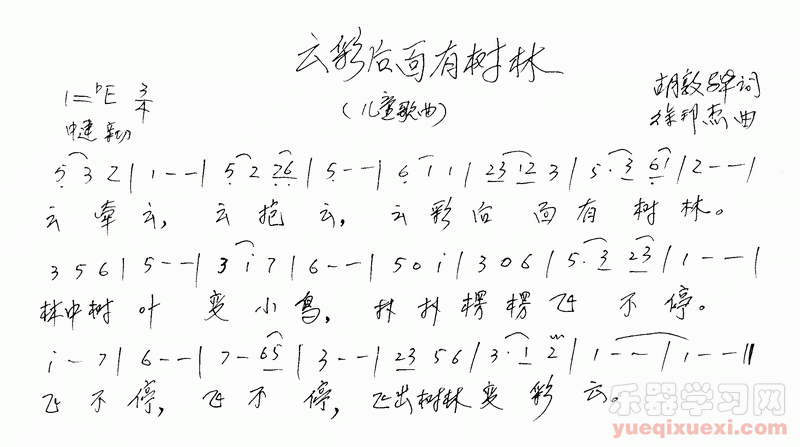 云彩后面有树林
(儿童歌曲)
1=ᵇE 3/4
中速
词
徐邦杰曲
5 3 2 | 1 - - | 5 2 26 | 5 - - | 6 1 1 | 23 12 3 | 5· 3 61 | 2 - - |
云 牵 云, 云 抱 云, 云 彩 后 面 有 树 林。
3 5 6 | 5 - - | 3 i 7 | 6 - - | 5 0 i | 3 0 6 | 5· 3 23 | 1 - - |
林中树 叶 变 小 鸟, 扑 扑 楞 楞 飞 不 停。
i - 7 | 6 - - | 7 - 65 | 3 - - | 23 5 6 | 3· 1 2 | 1 - - | 1 - - ‖
飞 不 停, 飞 不 停, 飞出树林 变 彩 云。
乐器学习网
yueqixuexi.com